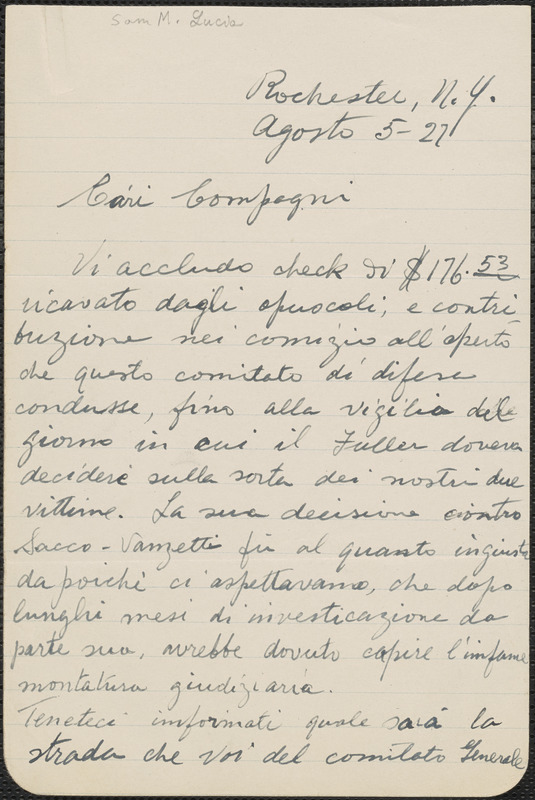 Sam M. Lucia
Rochester, N.Y.
Agosto 5-27
Cari Compagni
Vi accludo check di $176.53
ricavato dagli opuocoli, e contri
buzione nei comizio all'aperto
che questo comitato di difesa
condusse, fino alla vigilia del
giorno in cui il Fuller doveva
decidere sulla sorta dei nostri due
vittime. La sua decisione contro
Sacco-Vanzetti fù al quanto ingiusta
da poichè ci aspettavamo, che dopo
lunghi mesi di investicazione da
parte sua, avrebbe dovuto capire l'infame
montatura giudiziaria.
Teneteci informati quale sará la
strada che voi del comitato Generale